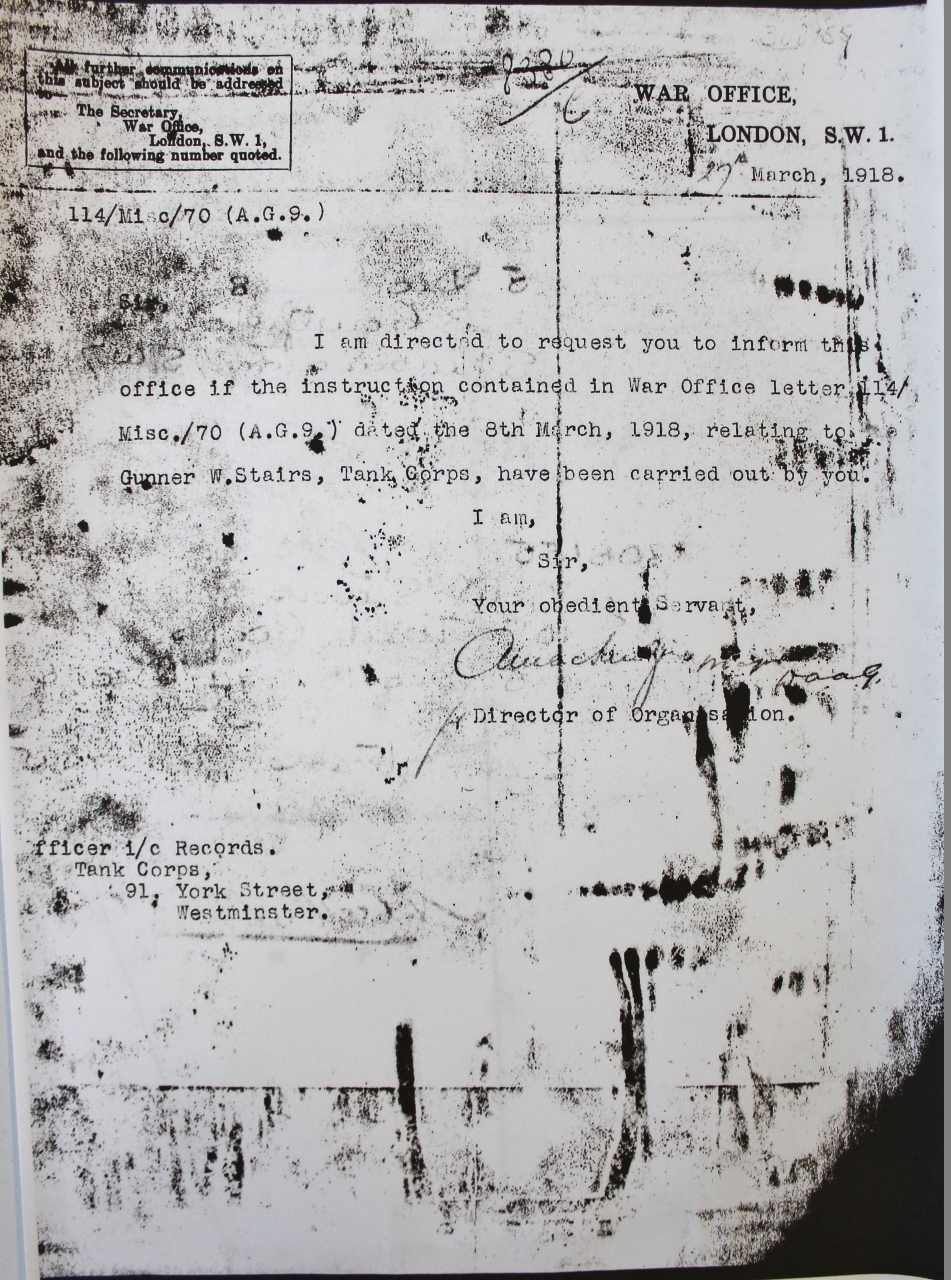 All further communications on
this subject should be addressed
to—
The Secretary,
War Office,
London, S.W. 1,
and the following number quoted.
WAR OFFICE,
LONDON, S.W. 1.
27th March, 1918.
114/Misc/70 (A.G.9.)
Sir,
I am directed to request you to inform this
office if the instruction contained in War Office letter 114/
Misc./70 (A.G.9.) dated the 8th March, 1918, relating to
Gunner W.Stairs, Tank Corps, have been carried out by you.
I am,
Sir,
Your obedient Servant,
Director of Organisation.
fficer i/c Records.
Tank Corps,
91, York Street,
Westminster.